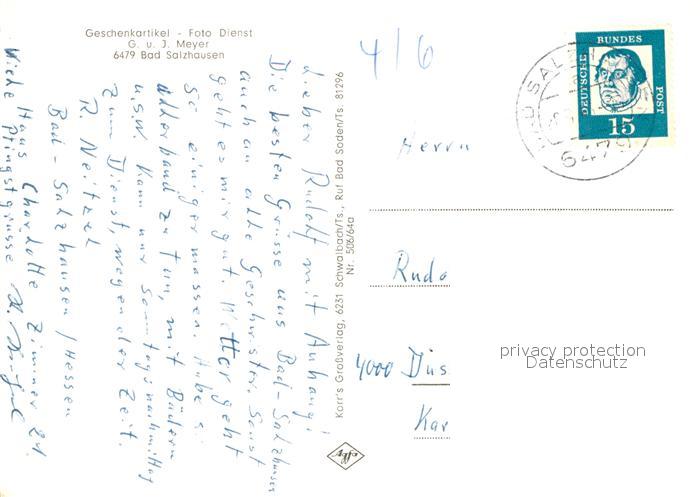 Geschenkartikel - Foto Dienst
G. u. J. Meyer
6479 Bad Salzhausen
4/6
DEUTSCHE
BUNDES
POST
15
6479
Lieber Rudolf mit Anhang!
Die besten Grüsse aus Bad-Salzhausen
auch an alle Geschwister. Sonst
geht es mir gut. Wetter geht
so einiger massen. Habe
allerhand zu tun, mit Bädern
u.s.w. Kann nur Sonntagsnachmittag
zum Dienst, wegen der Zeit.
R. Neitzel
Bad-Salzhausen / Hessen
Haus Charlotte Zimmer 21.
Viele Pfingstgrüsse
Korr's Großverlag, 6231 Schwalbach/Ts., Ruf Bad Soden/Ts. 81296
Nr. 506/64a
Agfa
Herrn
Rudo
4000 Düs
Kar
privacy protection
Datenschutz